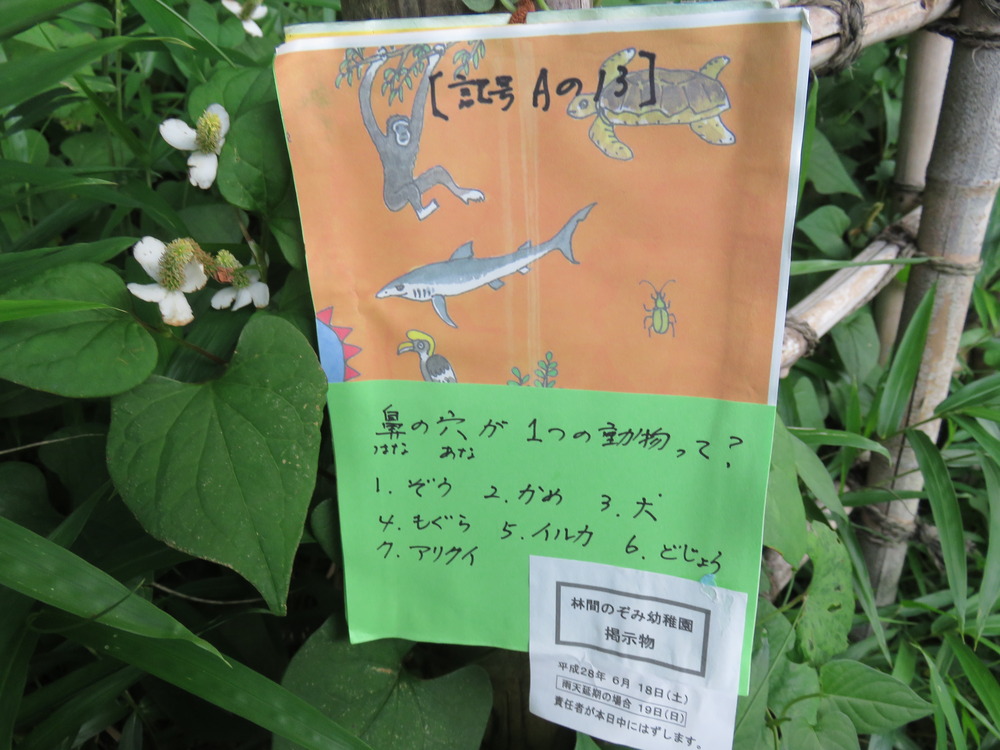 [記号 Aの13]
鼻の穴が 1つの動物って?
はな あな
1. ぞう 2. かめ 3. 犬
4. もぐら 5. イルカ 6. どじょう
7. アリクイ
林間のぞみ幼稚園
掲示物
平成28年 6月 18日(土)
雨天延期の場合 19日(日)
責任者が本日中にはずします。